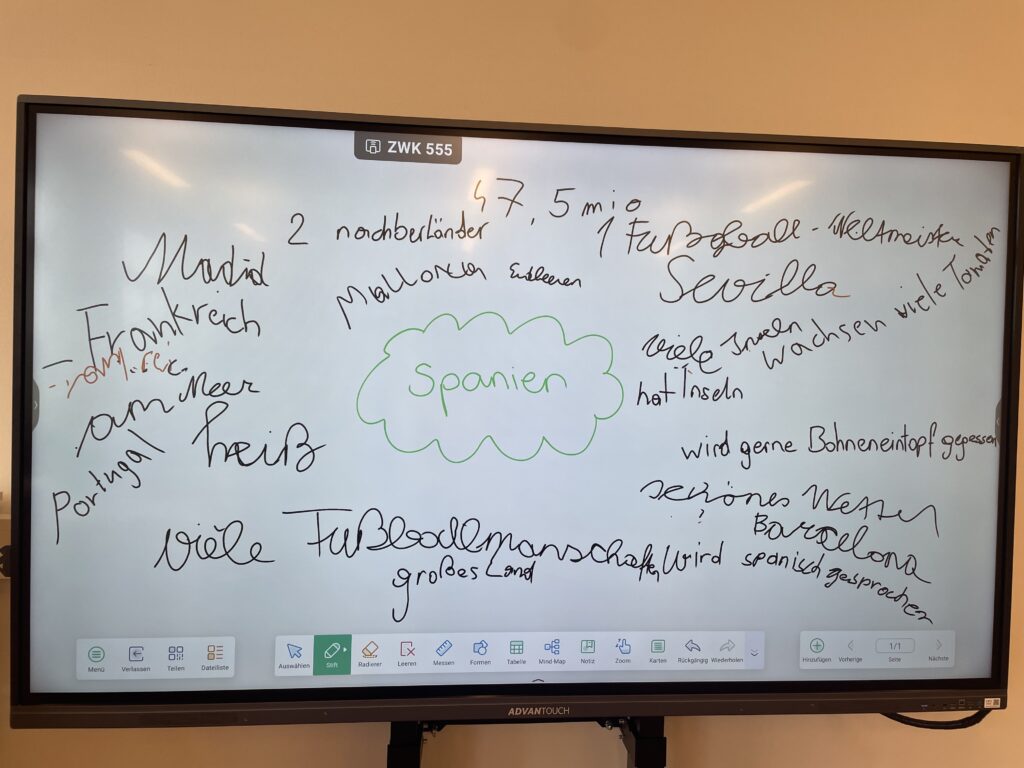 ZWK 555
47,5 mio
2 nachberländer
1 Fußball-Weltmeister
Madrid
Mallorca
Sevilla
Frankreich
viele Inseln
wachsen viele Tomaten
Spanien
hat Inseln
am Meer
heiß
Portugal
wird gerne Bohneneintopf gegessen
schönes Wetter
?
Barcelona
viele Fußballmanschaften
wird spanisch gesprochen
großes Land
Menü
Verlassen
Teilen
Dateiliste
Auswählen
Stift
Radierer
Leeren
Messen
Formen
Tabelle
Mind-Map
Notiz
Zoom
Karten
Rückgängig
Wiederholen
Hinzufügen
Vorherige
1/1
Seite
Nächste
ADVANTOUCH